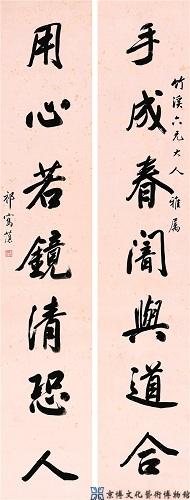 手成春闇與道合
竹溪六兄大人 雅屬
用心若鏡清恐人
祁寯藻
京博文化藝術博物館